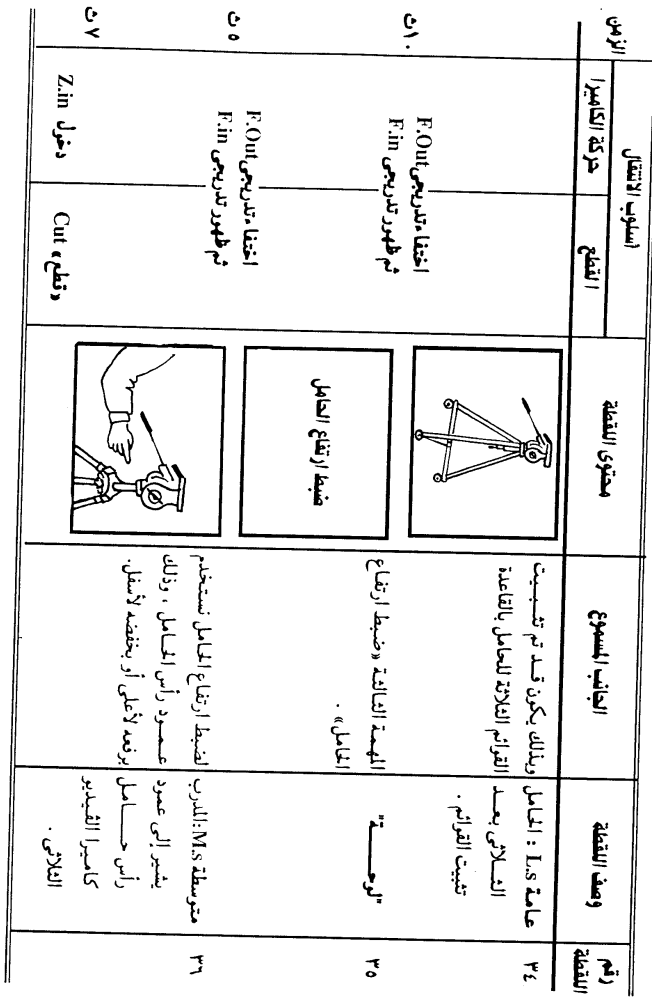 رقم
اللقطة
وصف اللقطة
الجانب المسموع
محتوى اللقطة
اسلوب الانتقال
القطع
حركة الكاميرا
الزمن
٣٤
عامة L.s : الحامل
الثلاثى بعد
تثبيت القوائم .
وبذلك يكون قد تم تثبيت
القوائم الثلاثة للحامل بالقاعدة
اختفاء تدريجى F.Out
ثم ظهور تدريجى F.in
١٠ ث
٣٥
"لوحة"
المهمة الثالثة «ضبط ارتفاع
الحامل» .
ضبط ارتفاع الحامل
اختفاء تدريجى F.Out
ثم ظهور تدريجى F.in
٥ ث
٣٦
متوسطة M.s: المدرب
يشير إلى عمود
رأس حامل
كاميرا الڤيديو
الثلاثى .
لضبط ارتفاع الحامل نستخدم
عمود رأس الحامل ، وذلك
برفعه لأعلى أو بخفضه لأسفل.
«قطع» Cut
دخول Z.in
٧ ث